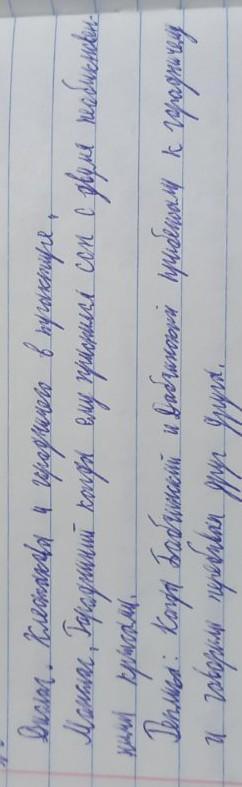 Диалог. Хлестакова и городничего в трактире.
Монолог. Городничий когда ему приснился сон с двумя необыкновен-
ными крысами.
Реплика: Когда Бобчинский и Добчинский прибежали к городничему
и говорили перебивая друг друга.